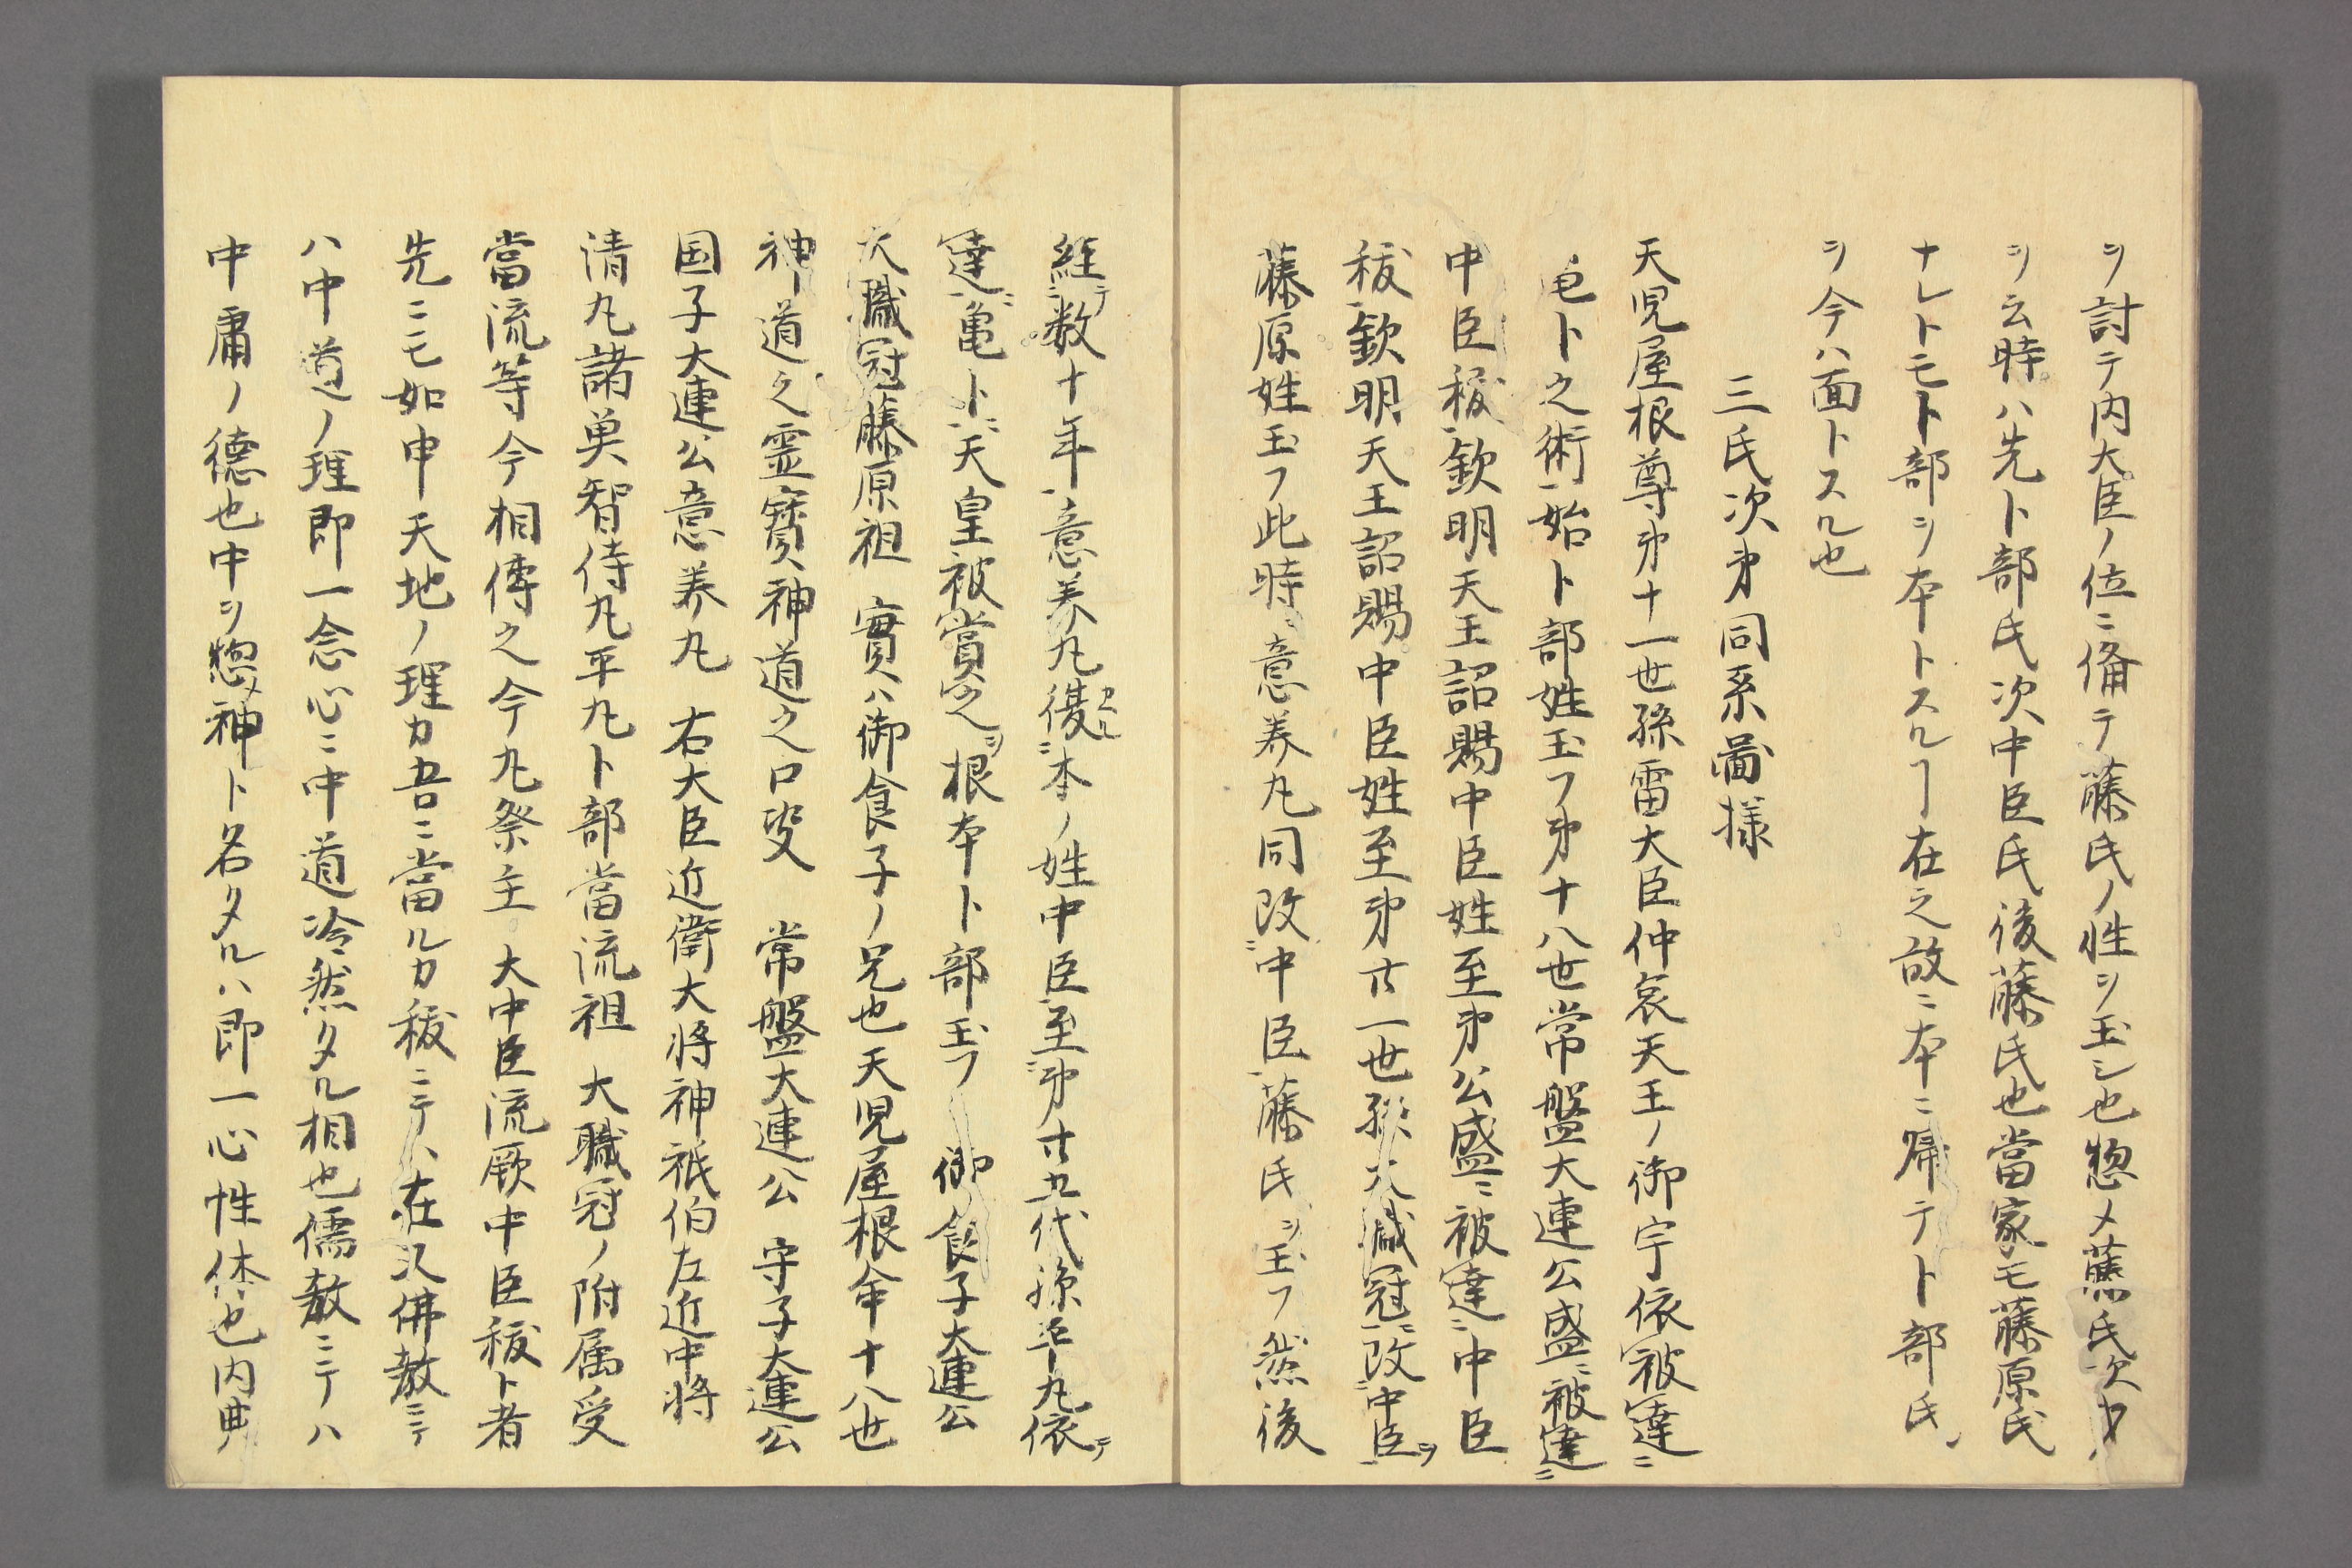 ヲ討テ内大臣ノ位ニ備テ藤氏ノ性ヲ玉シ也惣メ藤氏次才
ヲ云時ハ先卜部氏次中臣氏後藤氏也當家モ藤原氏
ナレトモ卜部ヲ本トスルヿ在之故ニ本ニ帰テト部氏
ヲ今ハ面トスル也
三氏次第同系圖様
天児屋根尊第十一世孫雷大臣仲哀天王ノ御宇依被達ニ
亀卜之術一始卜部姓玉フ第十八世常盤大連公盛ニ被達ニ
中臣秡一欽明天王詔賜中臣姓至第公盛ニ被達ニ中臣
秡一欽明天王詔賜中臣姓至第廿一世孫大職冠改ニ中臣ヲ
藤原姓玉フ此時意美丸同改ニ中臣一藤氏ヲ玉フ然後
経テ数十年意美丸復ニ本ノ姓中臣至第廿五代孫平丸依テ
達ニ亀卜ニ天皇被賞之ヲ根本卜部玉フ 御食子大連公
大職冠藤原祖 實ハ御食子ノ兄也天児屋根命十八世
神道之霊寳神道之口决 常盤大連公 守子大連公
国子大連公意美丸 右大臣近衛大将神祇伯左近中将
清丸諸魚智侍丸平丸卜部當流祖 大職冠ノ附属受
當流等今相傳之今丸祭主 大中臣流厥中臣秡ト者
先ニモ如申天地ノ理カ吾ニ當ルカ秡ニテハ在又佛教ニテ
ハ中道ノ理即一念心ニ中道冷然タル相也儒教ニテハ
中庸ノ徳也中ヲ惣メ神ト名タルハ即一心性体也内典